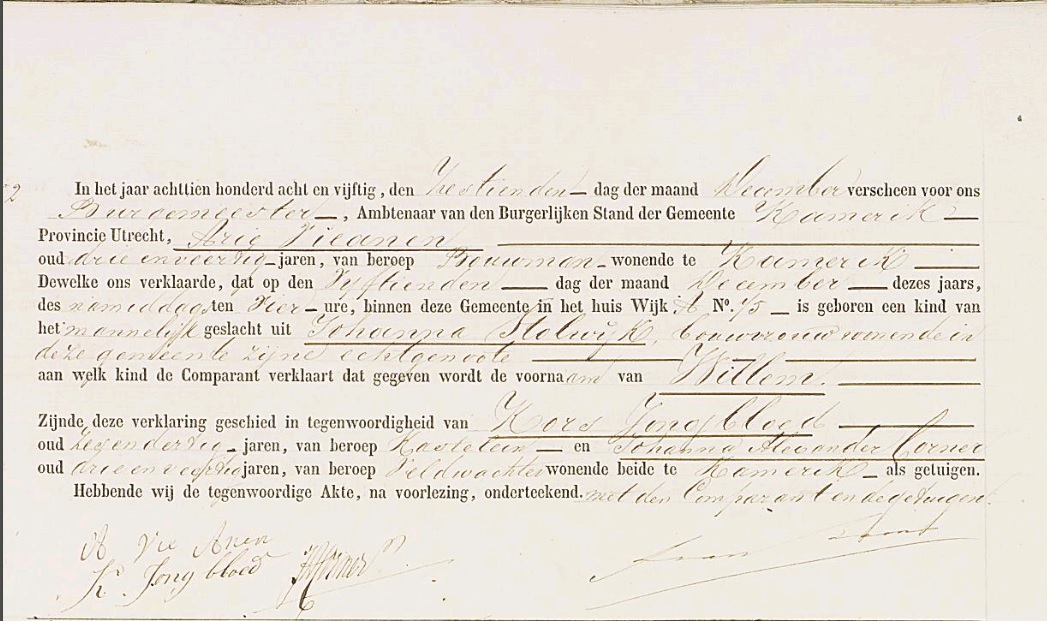 In het jaar achttien honderd acht en vijftig, den Zestienden dag der maand December verscheen voor ons
Burgemeester, Ambtenaar van den Burgerlijken Stand der Gemeente Kamerik
Provincie Utrecht, Arie Vieanen
oud drie en veertig jaren, van beroep Bouwman wonende te Kamerik
Dewelke ons verklaarde, dat op den Vyftienden dag der maand December dezes jaars,
des namiddags ten Vier ure, binnen deze Gemeente in het huis Wijk A No. 15 is geboren een kind van
het mannelijk geslacht uit Johanna Stolwijk, bouwvrouw wonende in
deze gemeente zijne echtgenoote
aan welk kind de Comparant verklaart dat gegeven wordt de voornaam van Willem.
Zijnde deze verklaring geschied in tegenwoordigheid van Kors Jongbloed
oud zesendertig jaren, van beroep Kastelein en Johanna Alexander Cornee
oud drie en veertig jaren, van beroep Veldwachter wonende beide te Kamerik als getuigen.
Hebbende wij de tegenwoordige Akte, na voorlezing, onderteekend. met den Comparant en de getuigen.
A Vie Anen
K. Jong bloed